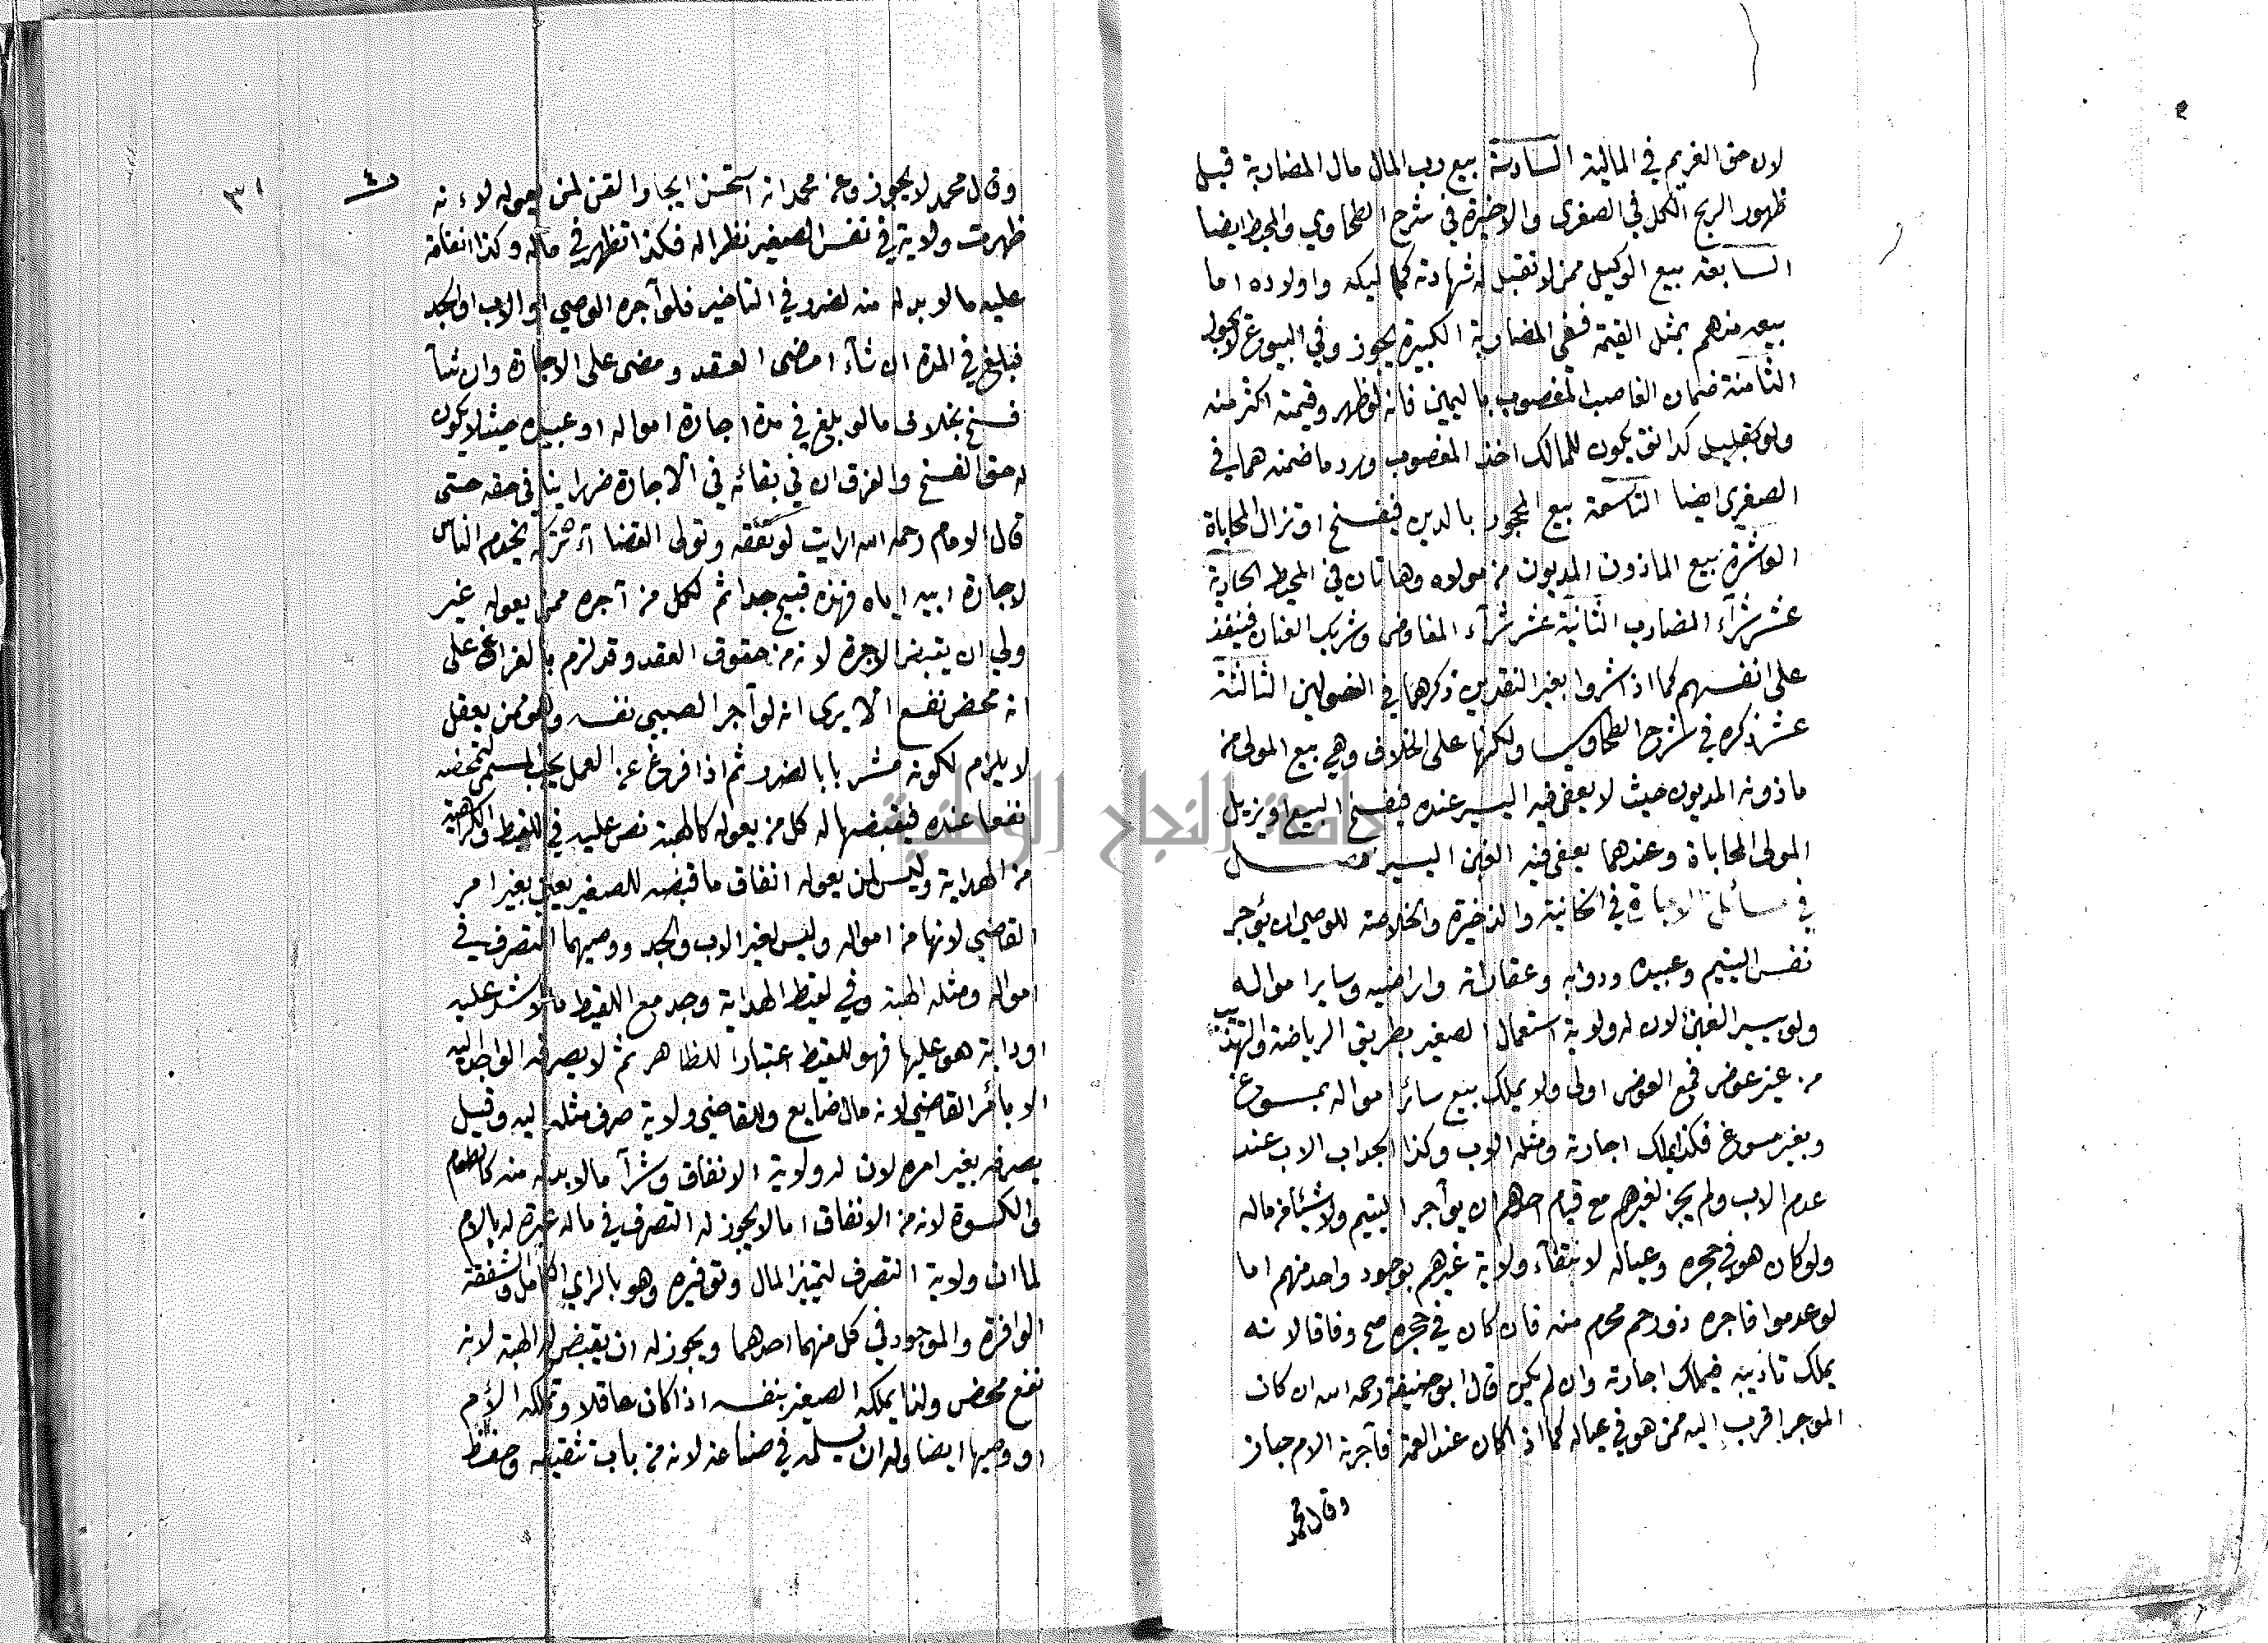 لان حق الغريم في المالية السادسة بيع رب المال مال المضاربة قبل
ظهور الربح الكل في الصغرى والاخيرة في شرح الطحاوي والمحيط ايضا
السابعة بيع الوكيل ممن لا تقبل له شهادته كمماليكه واولاده اما
بيعه منهم بمثل القيمة ففي المضاربة الكبيرة يجوز وفي البيوع لا يجوز
الثامنة ضمان الغاصب المغصوب باليمين فانه لو ظهر وقيمته اكثر منه
ولو بقليل كدانق يكون للمالك اخذ المغصوب ورد ما ضمنه هما في
الصغرى ايضا التاسعة بيع المحجور بالدين فيفسخ او تزال المحاباة
العاشرة بيع الماذون المديون من مولاه وهاتان في المحيط الحادية
عشر شرآء المضارب الثانية عشر شرآء المفاوض وشريك العنان فينفذ
على انفسهم كما اذا شروا بغير النقدين ذكرهما في الفصولين الثالثة
عشر ذكره في شرح الطحاوي ولكنها على الخلاف وهي بيع المولى من
ماذونه المديون حيث لا يعفى فيه اليسير عنده فيفسخ البيع او يزيل
المولى المحاباة وعندهما يعفى فيه الغبن اليسير فصل
في مسائل الاجارة في الخانية والذخيرة والخلاصة للوصي ان يؤجر
نفس اليتيم وعبيده ودوابه وعقاراته واراضيه وساير امواله
ولو بيسير الغبن لان له ولاية استعمال الصغير بطريق الرياضة والتهذيب
من غير عوض فمع العوض اولى ولا يملك بيع سائر امواله بمسوغ
وبغير مسوغ فكذا يملك اجارته ومثله الاب وكذا الجد اب الاب عند
عدم الاب ولم يجز لغيرهم مع قيام احدهم ان يؤآجر اليتيم ولا شيئا من ماله
ولو كان هو في حجره وعياله لانتفآء ولاية غيرهم بوجود واحد منهم اما
لو عدموا فاجره ذو رحم محرم منه فان كان في حجره صح وفاقا لانه
يملك تاديبه فيملك اجارته وان لم يكن قال ابو حنيفة رحمه الله ان كان
الموجر اقرب اليه ممن هو في عياله كما اذا كان عند العمة فآجرته الام جاز
وقال محمد
٣١
وقال محمد لا يجوز وعن محمد انه استحسن ايجار القن لمن يعوله لانه
ظهرت ولايته في نفس الصغير نظرا له فكذا تظهر في ماله وكذا انفاقه
عليه ما لا بد له منه لضرر في التاخير فلو آجره الوصي او الاب او الجد
فبلغ في المدة ان شآء امضى العقد ومضى على الاجارة وان شآ
فسخ بخلاف ما لو بلغ في مدة اجارة امواله او عبيده حيث لا يكون
له حق الفسخ والفرق ان في بقائه في الاجارة ضررا ينافي حقه حتى
قال الامام رحمه الله ارايت لو تفقه وتولى القضا أأتركه يخدم الناس
لاجارة ابيه اياه فهذه قبيح جدا ثم لكل من آجره ممن يعوله غير
ولي ان يقبض الاجرة لانه من حقوق العقد وقد لزم بالفراغ على
انه محض نفع الا يرى انه لو آجر الصبي نفسه وهو ممن يعقل
لا يلزم لكونه مشربا بالضرر ثم اذا فرغ عن العمل يجب المسمى لتمحضه
نفعا عنده فيقبضها له كل من يعوله كالهبة نص عليه في اللقيط والكراهية
من الهداية وليس لمن يعوله انفاق ما قبضه للصغير بغير امر
القاضي لانها من امواله وليس لغير الاب والجد ووصيهما التصرف في
امواله ومثله الهبة وفي لقيط الهداية وجد مع اللقيط مالا شد عليه
او دابة هو عليها فهو للقيط اعتبارا للظاهر ثم لا يصرفه الواجد اليه
الا بأمر القاضي لانه مال ضايع وللقاضي ولاية صرف مثله اليه وقيل
يصرفه بغير امره لان له ولاية الانفاق وشرآ ما لا بد له منه كالطعام
والكسوة لانه من الانفاق اما لا يجوز له التصرف في ماله عبرة له بالام
لما ان ولاية التصرف لتثمير المال وتوفيره وهو بالراي الكامل والشفقة
الوافرة والموجود في كل منهما احدهما ويجوز له ان يقبض له الهبة لانه
نفع محض ولذا يملكه الصغير بنفسه اذا كان عاقلا وتملكه الأم
ووصيها ايضا وله ان يسلمه في صناعة لانه من باب تثقيفه وحفظ
جامعة النجاح الوطنية